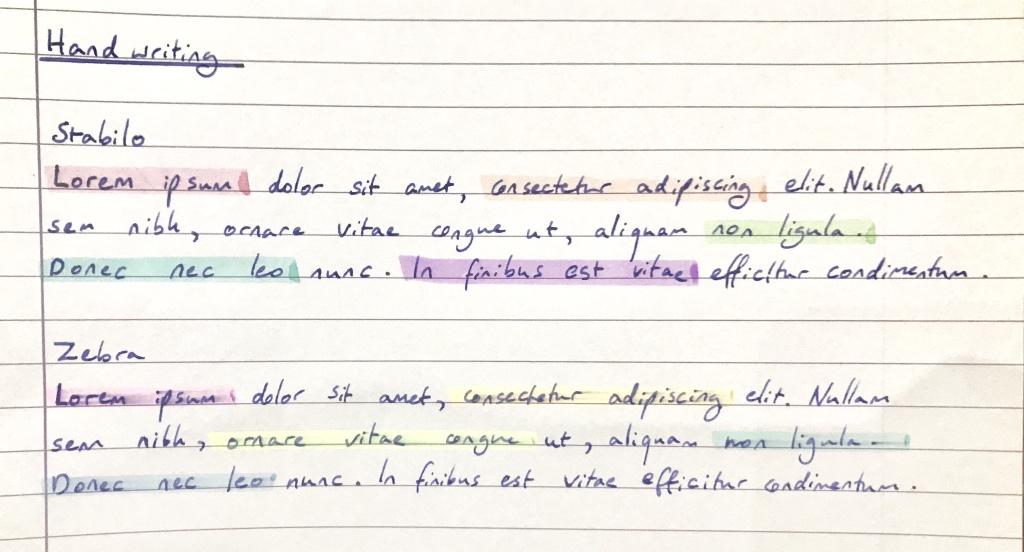 Hand writing
Stabilo
Lorem ipsum dolor sit amet, consectetur adipiscing elit. Nullam
sem nibh, ornare vitae congue ut, aliquam non ligula.
Donec nec leo nunc. In finibus est vitae efficitur condimentum.
Zebra
Lorem ipsum dolor sit amet, consectetur adipiscing elit. Nullam
sem nibh, ornare vitae congue ut, aliquam non ligula.
Donec nec leo nunc. In finibus est vitae efficitur condimentum.